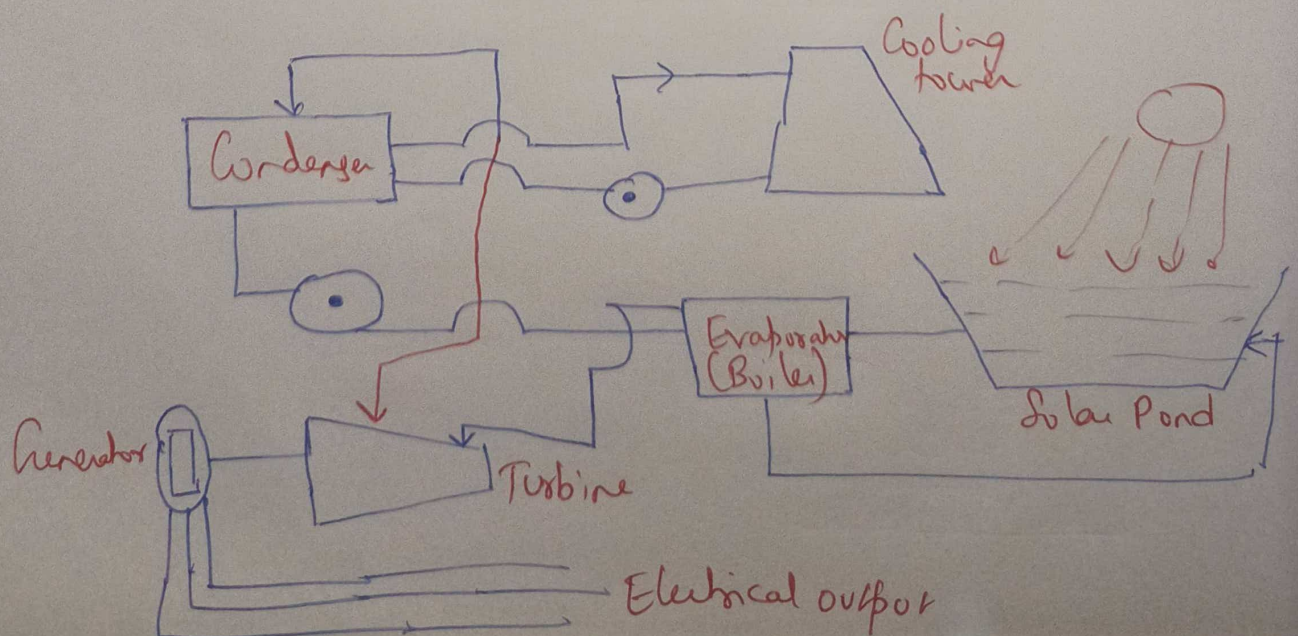 Cooling
tower
Condenser
Evaporator
(Boiler)
Solar Pond
Generator
Turbine
Electrical output